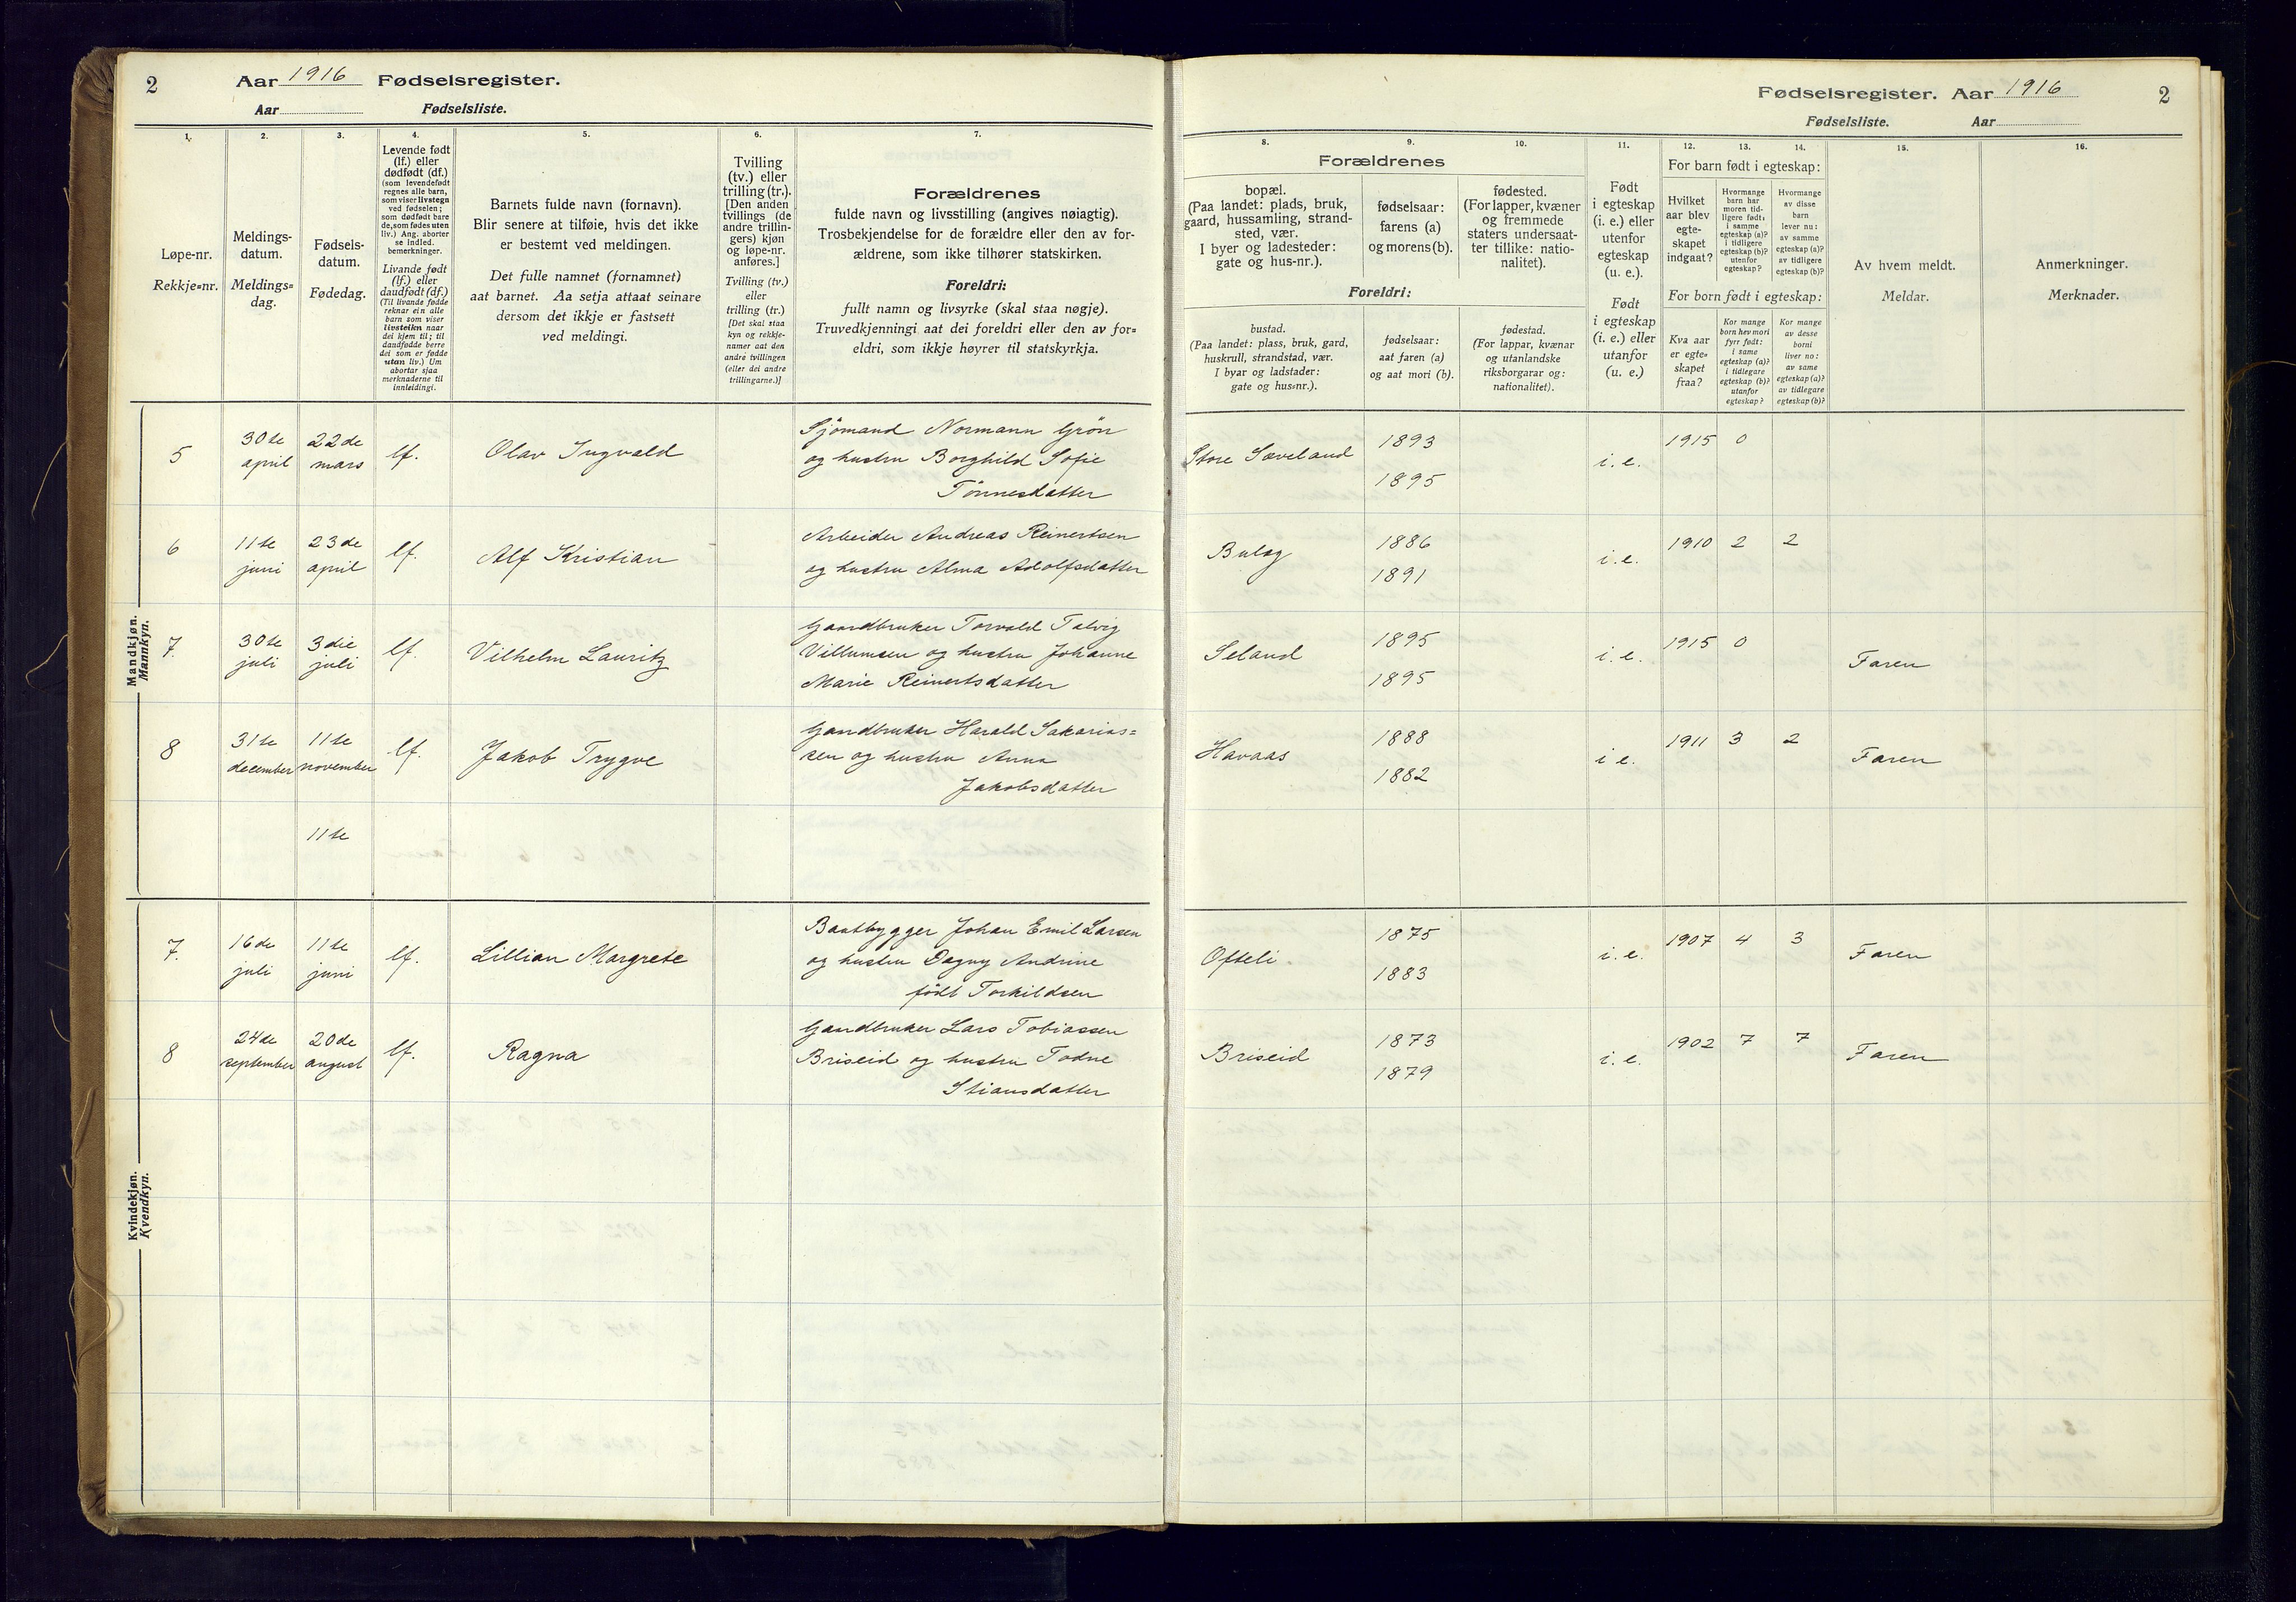 2
Aar 1916 Fødselsregister.
Aar Fødselsliste.
Fødselsregister. Aar 1916
2
Fødselsliste. Aar
1.
Løpe-nr.
Rekkje=nr.
2.
Meldings-
datum.
Meldings=
dag.
3.
Fødsels-
datum.
Fødedag.
4.
Levende født
(lf.) eller
dødfødt (df.)
(som levendefødt
regnes alle barn,
som viser livstegn
ved fødselen;
som dødfødt bare
de, som fødes uten
liv.) Ang. aborter
se indled.
bemerkninger.
Livande født
(lf.) eller
daudfødt (df.)
(Til livande fødde
reknar ein alle
barn som viser
livsteikn naar
dei kjem til; til
daudfødde berre
dei som er fødde
utan liv.) Um
abortar sjaa
merknaderne til
innleidingi.
5.
Barnets fulde navn (fornavn).
Blir senere at tilføie, hvis det ikke
er bestemt ved meldingen.
Det fulle namnet (fornamnet)
aat barnet. Aa setja attaat seinare
dersom det ikkje er fastsett
ved meldingi.
6.
Tvilling
(tv.) eller
trilling (tr.).
[Den anden
tvillings (de
andre trillin-
gers) kjøn
og løpe-nr.
anføres.]
Tvilling (tv.)
eller
trilling (tr.)
[Det skal staa
kyn og rekkje-
numer aat den
andre tvillingen
(eller dei andre
trillingarne.)]
7.
Forældrenes
fulde navn og livsstilling (angives nøiagtig).
Trosbekjendelse for de forældre eller den av for-
ældrene, som ikke tilhører statskirken.
Foreldri:
fullt namn og livsyrke (skal staa nøgje).
Truvedkjenningi aat dei foreldri eller den av for=
eldri, som ikkje høyrer til statskyrkja.
Forældrenes
8.
bopæl.
(Paa landet: plads, bruk,
gaard, hussamling, strand-
sted, vær.
I byer og ladesteder:
gate og hus-nr.).
9.
fødselsaar:
farens (a)
og morens (b).
10.
fødested.
(For lapper, kvæner
og fremmede
staters undersaat-
ter tillike: natio-
nalitet).
Foreldri:
bustad.
(Paa landet: plass, bruk, gard,
huskrull, strandstad, vær.
I byar og ladstader:
gate og hus=nr.).
fødselsaar:
aat faren (a)
og aat mori (b).
fødestad.
(For lappar, kvænar
og utanlandske
riksborgarar og:
nationalitet).
11.
Født
i egteskap
(i. e.) eller
utenfor
egteskap
(u. e.).
Født
i egteskap
(i. e.) eller
utanfor
(u. e.)
12. 13. 14.
For barn født i egteskap:
Hvilket
aar blev
egte-
skapet
indgaat?
Hvormange
barn har
moren tid-
ligere født:
i samme
egteskap (a)?
i tidligere
egteskap (b)?
utenfor
egteskap?
Hvormange
av disse
barn
lever nu:
av samme
egteskap (a)?
av tidligere
egteskap (b)?
For born født i egteskap:
Kva aar
er egte=
skapet
fraa?
Kor mange
born hev mori
fyrr født:
i same
egteskap (a)?
i tidlegare
egteskap (b)?
utanfor
egteskap?
Kor mange
av desse
borni
liver no:
av same
egteskap (a)?
av tidlegare
egteskap (b)?
15.
Av hvem meldt.
Meldar.
16.
Anmerkninger.
Merknader.
Mandkjøn.
Mannkyn.
5 30te april 22de mars lf. Olav Ingvald
Sjömand Normann Grön
og hustru Borghild Sofie
Tönnesdatter
Store Sæveland 1893 1895 i. e. 1915 0
6 11te juni 23de april lf. Alf Kristian
Arbeider Andreas Reinertsen
og hustru Alma Adolfsdatter
Buløg 1886 1891 i. e. 1910 2 2
7. 30te juli 3die juli lf. Vilhelm Lauritz
Gaardbruker Torvald Talvig
Villumsen og hustru Johanne
Marie Reinertsdatter
Seland 1895 1895 i. e. 1915 0 Faren
8 31te december 11te november lf. Jakob Trygve
Gaardbruker Harald Sakarias=
sen og hustru Anna
Jakobsdatter
Havaas 1888 1882 i e. 1911 3 2 Faren
11te
Kvindekjøn.
Kvendkyn.
7. 16de juli 11te juni lf. Lillian Margrete
Baatbygger Johan Emil Larsen
og hustru Dagny Andrine
födt Torkildsen
Ofteli 1875 1883 i. e. 1907 4 3 Faren
8 24de september 20de august lf. Ragna
Gaardbruker Lars Tobiassen
Briseid og hustru Todne
Stiansdatter
Briseid 1873 1879 i. e. 1902 7 7 Faren